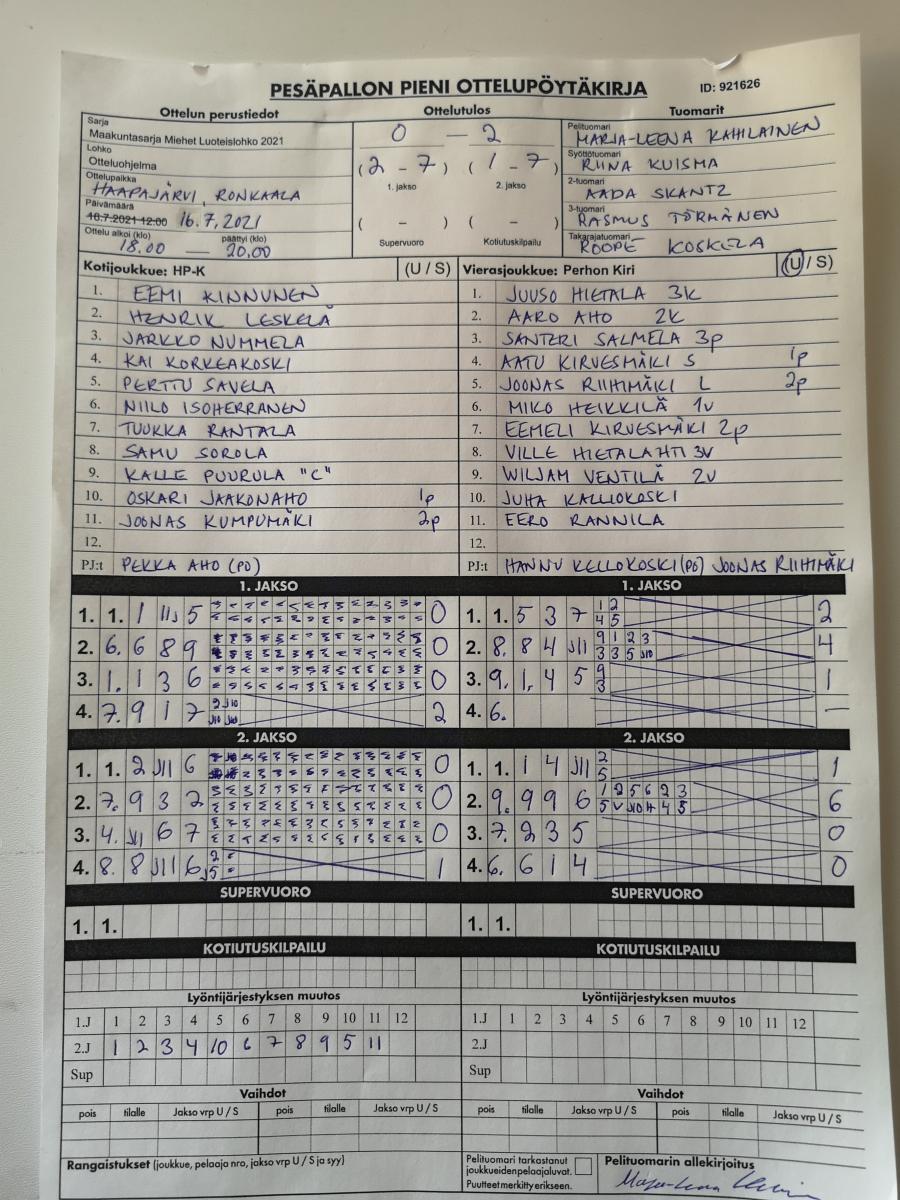 PESÄPALLON PIENI OTTELUPÖYTÄKIRJA
ID: 921626
Ottelun perustiedot
Sarja
Maakuntasarja Miehet Luoteislohko 2021
Lohko
Otteluohjelma
Ottelupaikka
HAAPAJÄRVI, RONKAALA
Päivämäärä
16.7.2021 12:00 16.7.2021
Ottelu alkoi (klo) päättyi (klo)
18.00 — 20.00
Ottelutulos
0 — 2
(2 - 7) (1 - 7)
1. jakso 2. jakso
( - ) ( - )
Supervuoro Kotiutuskilpailu
Tuomarit
Pelituomari
MARJA-LEENA KAHILAINEN
Syöttötuomari
RIINA KUISMA
2-tuomari
AADA SKANTZ
3-tuomari
RASMUS TÖRMÄNEN
Takarajatuomari
ROOPE KOSKELA
Kotijoukkue: HP-K (U / S)
1. EEMI KINNUNEN
2. HENRIK LESKELÄ
3. JARKKO NUMMELA
4. KAI KORKEAKOSKI
5. PERTTU SAVELA
6. NIILO ISOHERRANEN
7. TUUKKA RANTALA
8. SAMU SOROLA
9. KALLE PUURULA "C"
10. OSKARI JAAKONAHO 1p
11. JOONAS KUMPUMÄKI 2p
12.
PJ:t PEKKA AHO (PO)
Vierasjoukkue: Perhon Kiri (U / S)
1. JUUSO HIETALA 3K
2. AARO AHO 2K
3. SANTERI SALMELA 3p
4. AATU KIRVESMÄKI S 1p
5. JOONAS RIIHIMÄKI L 2p
6. MIKO HEIKKILÄ 1V
7. EEMELI KIRVESMÄKI 2p
8. VILLE HIETALAHTI 3V
9. WILJAM VENTILÄ 2V
10. JUHA KALLIOKOSKI
11. EERO RANNILA
12.
PJ:t HANNU KELLOKOSKI (PO) JOONAS RIIHIMÄKI
1. JAKSO
1. 1. 1 5 0
2. 6. 6 8 9 0
3. 1. 1 3 6 0
4. 7. 9 1 7 2
1. JAKSO
1. 1. 5 3 7 1 2 2
4 5
2. 8. 8 4 J11 9 1 2 3 4
3 3 5 J10
3. 9. 1. 4 5 9 1
3
4. 6. —
2. JAKSO
1. 1. 2 J11 6 0
2. 7. 9 3 2 0
3. 4. J11 6 7 0
4. 8. 8 J11 6 2 1
2. JAKSO
1. 1. 1 4 J11 2 1
5
2. 9. 9 9 6 1 2 5 6 2 3 6
5 V J10 4 5
3. 7. 2 3 5 0
4. 6. 6 1 4 0
SUPERVUORO
1. 1.
SUPERVUORO
1. 1.
KOTIUTUSKILPAILU
KOTIUTUSKILPAILU
Lyöntijärjestyksen muutos
1.J 1 2 3 4 5 6 7 8 9 10 11 12
2.J 1 2 3 4 10 6 7 8 9 5 11
Sup
Lyöntijärjestyksen muutos
1.J 1 2 3 4 5 6 7 8 9 10 11 12
2.J
Sup
Vaihdot
pois tilalle Jakso vrp U / S pois tilalle Jakso vrp U / S
Vaihdot
pois tilalle Jakso vrp U / S pois tilalle Jakso vrp U / S
Rangaistukset (joukkue, pelaaja nro, jakso vrp U / S ja syy)
Pelituomari tarkastanut
joukkueiden pelaajaluvat.
Puutteet merkitty erikseen.
Pelituomarin allekirjoitus
Marja-Leena